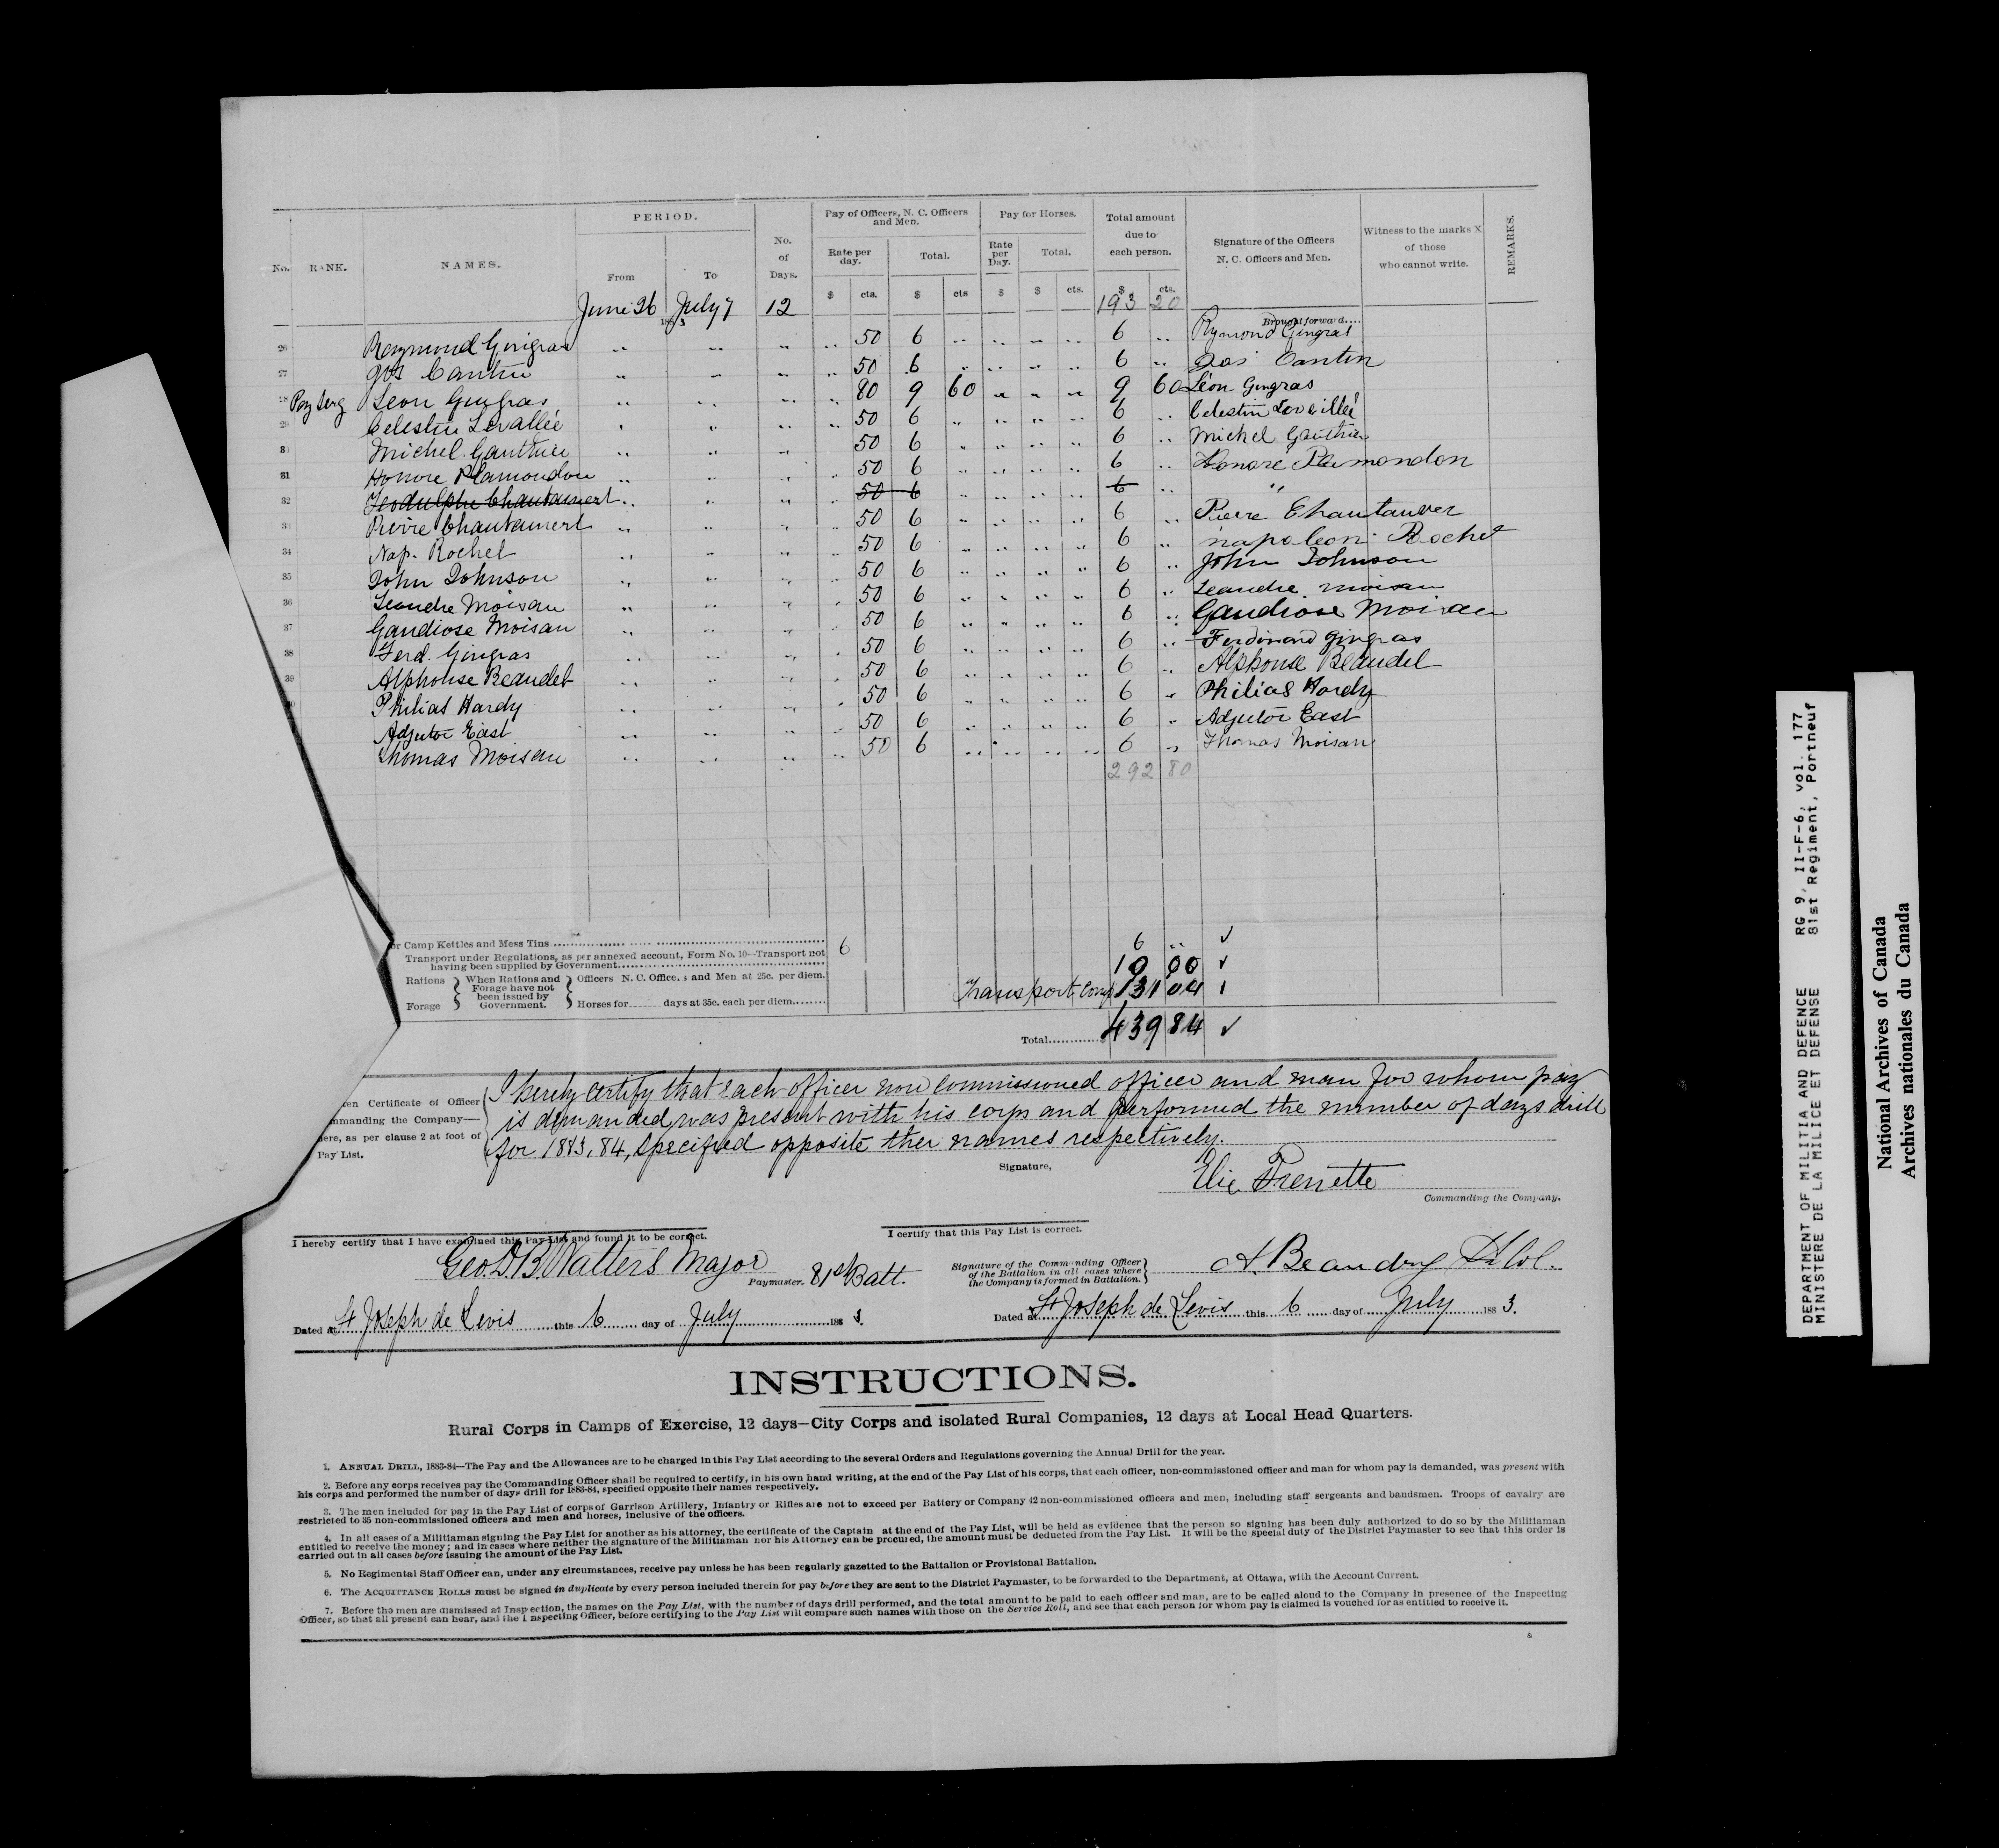 PERIOD.
Pay of Officers, N. C. Officers and Men.
Pay for Horses.
Total amount due to each person.
Signature of the Officers N. C. Officers and Men.
Witness to the marks X of those who cannot write.
REMARKS.
No. RANK. NAMES. From To No. of Days. Rate per day. Total. Rate per Day. Total.
$ cts. $ cts $ $ cts. $ cts.
June 26 July 7 12 193 20
1883 Brought forward....
26 Raymond Gingras .. .. .. .. 50 6 .. .. .. .. 6 .. Rymond Gingras
27 Jos Cantin .. .. .. .. 50 6 .. .. .. .. 6 .. Jos Cantin
28 Pay Serg Leon Gingras .. .. .. .. 80 9 60 .. .. .. 9 60 Léon Gingras
29 Celestin Levallée .. .. .. .. 50 6 .. .. .. .. 6 .. Celestin
30 Michel Gauthier .. .. .. 50 6 .. .. .. .. 6 .. Michel Gauthier
31 Honore Plamondon .. .. .. .. 50 6 .. .. .. .. 6 .. Honoré Plamondon
32 Teodulphe Chautauvert .. .. .. .. 50 6 .. .. .. .. 6 .. "
33 Pierre Chautauvert .. .. .. .. 50 6 .. .. .. .. 6 .. Pierre Chautauver
34 Nap. Rochet .. .. .. .. 50 6 .. .. .. .. 6 .. napoleon Rochet
35 John Johnson .. .. .. .. 50 6 .. .. .. .. 6 .. John Johnson
36 Leandre Moisan .. .. .. .. 50 6 .. .. .. .. 6 .. Leandre moisan
37 Gaudiose Moisan .. .. .. .. 50 6 .. .. .. .. 6 .. Gaudiose Moisan
38 Ferd. Gingras .. .. .. .. 50 6 .. .. .. .. 6 .. Ferdinand gingras
39 Alphonse Beaudet .. .. .. .. 50 6 .. .. .. .. 6 .. Alphonse Beaudet
Philias Hardy .. .. .. .. 50 6 .. .. .. .. 6 .. Philias Hardy
Adjutor East .. .. .. .. 50 6 .. .. .. .. 6 .. Adjutor East
Thomas Moisan .. .. .. .. 50 6 .. .. .. .. 6 .. Thomas Moisan
292 80
or Camp Kettles and Mess Tins.......... 6 6 .. ✓
Transport under Regulations, as per annexed account, Form No. 10—Transport not
having been supplied by Government.......... 10 00 ✓
Rations Forage { When Rations and Forage have not been issued by Government. } Officers N. C. Officers and Men at 25c. per diem.
Horses for ...... days at 35c. each per diem........ Transport Comp 131 04
Total............ 439 84 ✓
ten Certificate of Officer
mmanding the Company—
here, as per clause 2 at foot of
Pay List.
I hereby certify that each officer non commissioned officer and man for whom pay
is demanded, was present with his corps and performed the number of days drill
for 1883, 84, specified opposite ther names respectively.
Signature, Elie Frenette
Commanding the Company.
I hereby certify that I have examined this Pay List and found it to be correct.
I certify that this Pay List is correct.
Geo. D. B. Watters Major
Paymaster. 81st Batt.
Signature of the Commanding Officer of the Battalion in all cases where the Company is formed in Battalion. } A. Beaudry Lt Col.
Dated at St Joseph de Levis this 6 day of July 1883.
Dated at St Joseph de Levis this 6 day of July 1883.
INSTRUCTIONS.
Rural Corps in Camps of Exercise, 12 days—City Corps and isolated Rural Companies, 12 days at Local Head Quarters.
1. ANNUAL DRILL, 1883-84—The Pay and the Allowances are to be charged in this Pay List according to the several Orders and Regulations governing the Annual Drill for the year.
2. Before any corps receives pay the Commanding Officer shall be required to certify, in his own hand writing, at the end of the Pay List of his corps, that each officer, non-commissioned officer and man for whom pay is demanded, was present with
his corps and performed the number of days drill for 1883-84, specified opposite their names respectively.
3. The men included for pay in the Pay List of corps of Garrison Artillery, Infantry or Rifles are not to exceed per Battery or Company 42 non-commissioned officers and men, including staff sergeants and bandsmen. Troops of cavalry are
restricted to 35 non-commissioned officers and men and horses, inclusive of the officers.
4. In all cases of a Militiaman signing the Pay List for another as his attorney, the certificate of the Captain at the end of the Pay List, will be held as evidence that the person so signing has been duly authorized to do so by the Militiaman
entitled to receive the money; and in cases where neither the signature of the Militiaman nor his Attorney can be procured, the amount must be deducted from the Pay List. It will be the special duty of the District Paymaster to see that this order is
carried out in all cases before issuing the amount of the Pay List.
5. No Regimental Staff Officer can, under any circumstances, receive pay unless he has been regularly gazetted to the Battalion or Provisional Battalion.
6. The ACQUITTANCE ROLLS must be signed in duplicate by every person included therein for pay before they are sent to the District Paymaster, to be forwarded to the Department, at Ottawa, with the Account Current.
7. Before the men are dismissed at Inspection, the names on the Pay List, with the number of days drill performed, and the total amount to be paid to each officer and man, are to be called aloud to the Company in presence of the Inspecting
Officer, so that all present can hear, and the Inspecting Officer, before certifying to the Pay List will compare such names with those on the Service Roll, and see that each person for whom pay is claimed is vouched for as entitled to receive it.
DEPARTMENT OF MILITIA AND DEFENCE RG 9, II-F-6, vol. 177
MINISTERE DE LA MILICE ET DEFENSE 81st Regiment, Portneuf
National Archives of Canada
Archives nationales du Canada